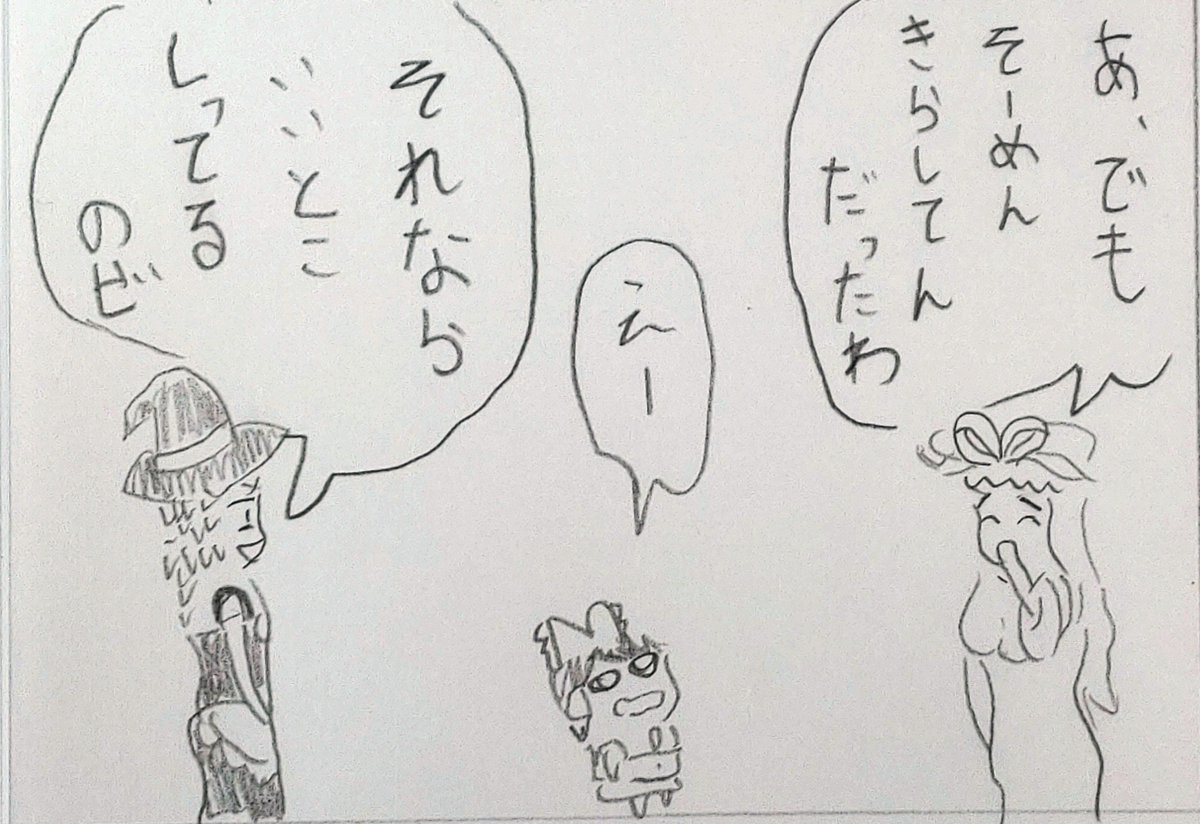 あ、でも
そーめん
きらしてん
だったわ
えー
それなら
いいとこ
しってる
のぜ